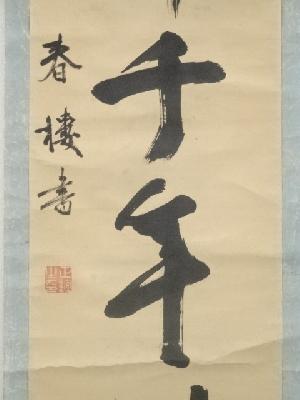 千年
春樓書